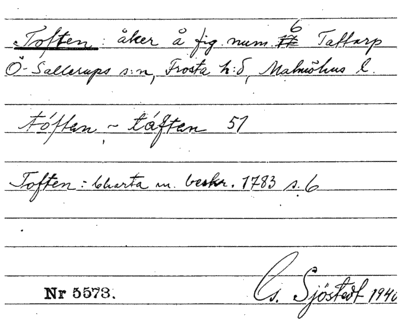 Toften: åker å fig. num. 6 Tattarp
Ö. Sallerups s:n, Frosta h:d, Malmöhus l.
tóftan ~ táftan 51
Toften: Charta m. beskr. 1783 s. 6
Nr 5573. Cs. Sjöstedt 1940